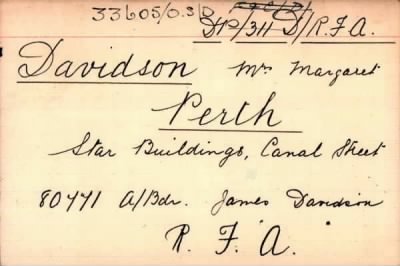 33605/O.3/D
D10/311 D/R.F.A.
Davidson Mrs Margaret
Perth
Star Buildings, Canal Street
80471 A/Bdr. James Davidson
R. F. A.